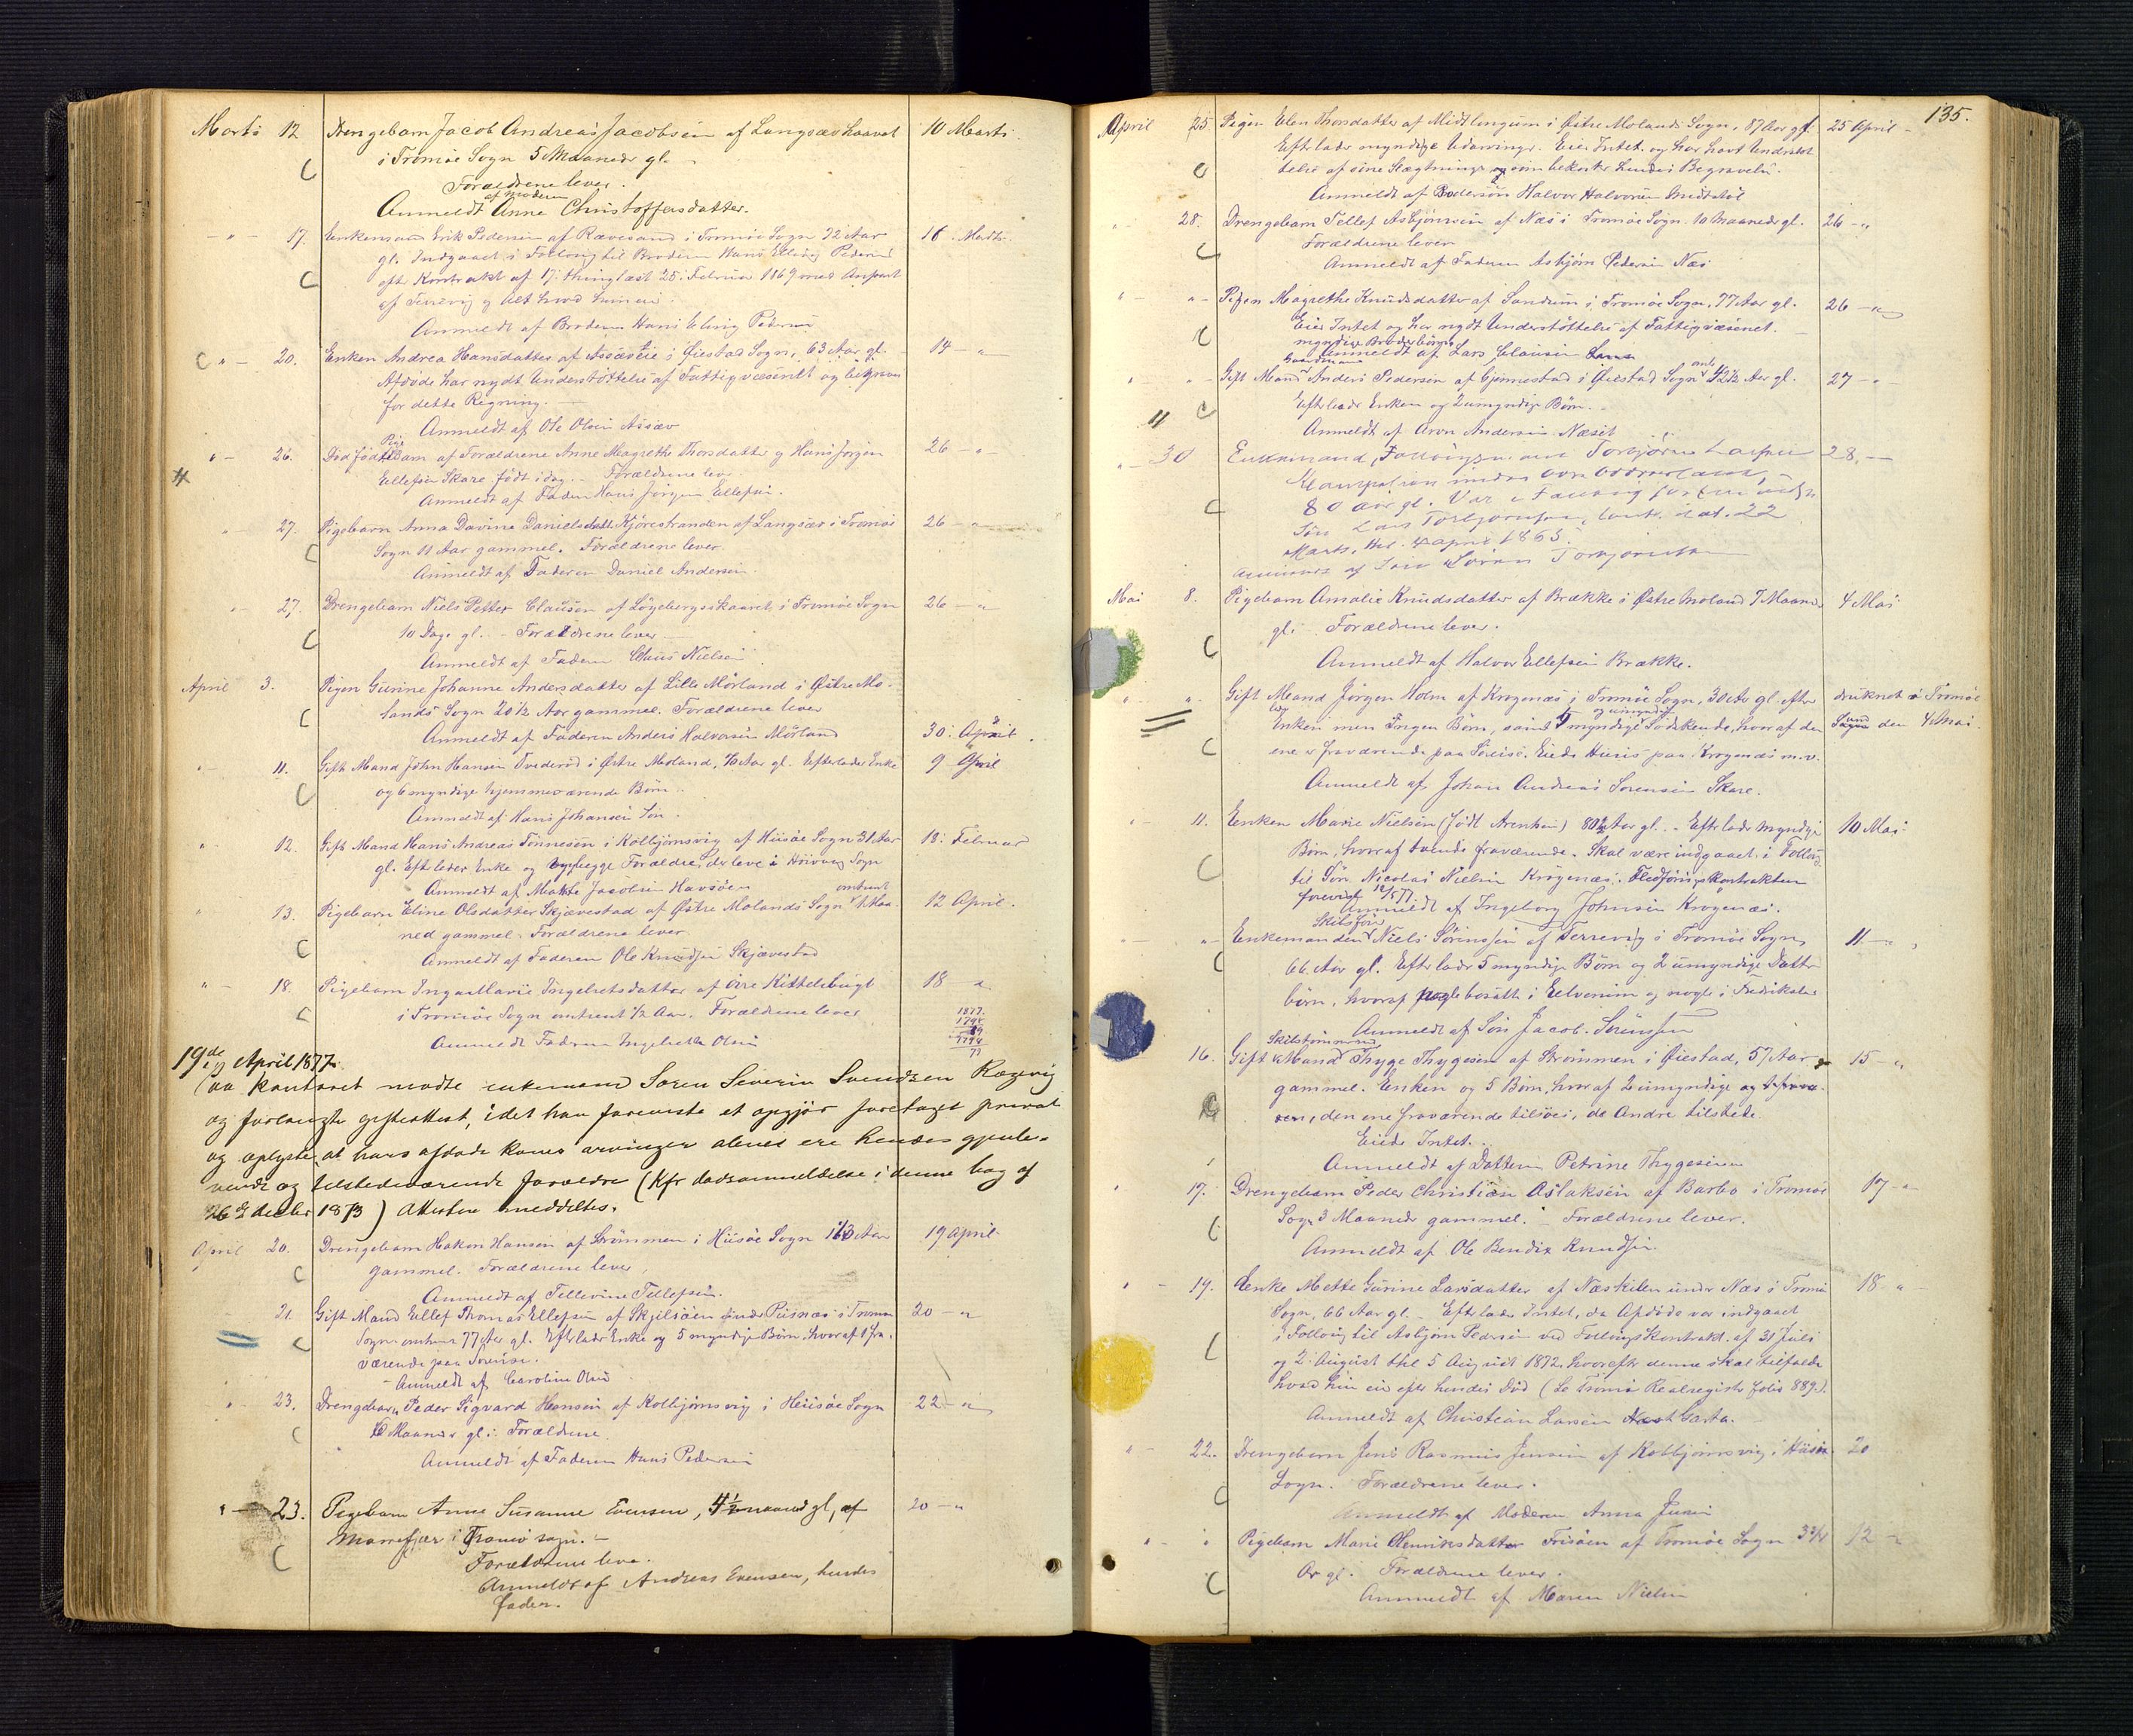 Marts 12 Drengebarn Jacob Andreas Jacobsen af Langsævhaavet 10 Marts
i Tromøe Sogn 5 Maaneder gl.
C Forældrene lever.
af Moderen
Anmeldt Anne Christoffersdatter.
" 17. Enkemand Erik Pedersen af Rævesand i Tromøe Sogn 72 Aar 16 Marts
gl. Indgaaet i Follong til Broderen Hans Elling Pedersen
C eft. Kontrakt af 17. thinglæst 25. Februar 1869 med Anpart
af og Alt hvad
Anmeldt af Broderen Hans Elling Pedersen
C " 20. Enken Andrea Hansdatter af Assæveie i Øiestad Sogn, 63 Aar gl. 14 "
Afdøde har nydt Understøttelse af Fattigvæsenet og begraves
for dette Regning.
Anmeldt af Ole Olsen Assæv
Pige
" 26. Dødfødt Barn af Forældrene Anne Magrethe Thorsdatter og Hans Jørgen 26 "
Ellefsen Skare født idag. Forældrene lever.
Anmeldt af Faderen Hans Jørgen Ellefsen.
" 27. Pigebarn Anna Davine Danielsdatt. Kjørestranden af Langsæv i Tromøe 26 "
C Sogn 11 Aar gammel. Forældrene lever.
Anmeldt af Faderen Daniel Andersen.
27. Drengebarn Niels Petter Clausen af Løgebergsskaaret i Tromøe Sogn 26 "
C 10 Dage gl. - Forældrene lever
Anmeldt af Faderen Claus Nielsen
April 3. Pigen Gurine Johanne Andersdatter af Lille Mørland i Østre Mo-
C lands Sogn 20 1/2 Aar gammel. Forældrene lever
Anmeldt af Faderen Anders Halvorsen Mørland 30. April
" 11. Gift Mand John Hansen Tvederød i Østre Moland, Aar gl. Efterlader Enke 9 April
C og 6 myndige hjemmeværende Børn.
Anmeldt af Hans Johansen Søn.
" 12. Gift Mand Hans Andreas Tønnesen i Kolbjørnsvig af Hisøe Sogn 31 Aar 18. Februar
gl. Efterlader Enke og begge Forældre, der leve i Høivaag Sogn
Anmeldt af Jacobsen Havsøen
omtrent
" 13. Pigebarn Eline Olsdatter Skjævestad af Østre Molands Sogn 1 Maa- 12 April.
C ned gammel. Forældrene lever
Anmeldt af Faderen Ole Knudsen Skjævestad
" 18. Pigebarn Inga Marie Ingebretsdatter af Øvre Kittelsbugt 18 "
C i Tromøe Sogn omtrent 1/2 Aar. Forældrene lever
Anmeldt Faderen Ingebreth Olsen
1877.
19de April 1877.
Paa Kontoret mødte enkemand Søren Severin Svendsen Rægevig
og forlangte gifteattest, idet han foreviste et opgjør foretaget privat
og oplyste, at hans afdøde kones arvinger alene ere hendes gjenle-
vende og tilstedeværende forældre (Kfr dødsanmeldelse i denne bog af
26de decbr 1873) Attesten meddeltes.
April 20. Drengebarn Hakon Hansen af Strømmen i Hisøe Sogn Aar 19 April
C gammel. Forældrene lever
Anmeldt af Tellevine Tellefsen.
21. Gift Mand Ellef Thomas Ellefsen af Skjelsøen under Pusnæs i Tromøe 20 "
C Sogn omtrent 77 Aar gl. Efterlader Enke og 5 myndige Børn, hvoraf 1 fra-
værende paa Søreise.
Anmeldt af Caroline Olsen
" 23. Drengebarn Peder Sigvard Hansen af Kolbjørnsvig i Hisøe Sogn 22 "
C Maaneder gl. Forældrene
Anmeldt af Faderen Hans Pedersen
" 23. Pigebarn Anne Susanne Evensen, 4 1/2 maaned gl, af 20 "
Marrefjær i Tromø sogn.
C Forældrene leve.
Anmeldt af Andreas Evensen, hendes
fader.
135.
April 25 Pigen Elen Thorsdatter af Midtlongum i Østre Molands Sogn, 87 Aar gl. 25 April
Efterlader myndige Udarvinger. Eier Intet og har havt Understøt
C telse af sine Slægtninge som bekoster hendes Begravelse.
Anmeldt af Brodersøn Halvor Halvorsen
" 28. Drengebarn Tellef Asbjørnsen af Næs i Tromøe Sogn 10 Maaneder gl. 26 "
Forældrene lever
C Anmeldt af Faderen Asbjørn Pedersen Næs
" " Pigen Magrethe Knudsdatter af Sandum i Tromøe Sogn, 77 Aar gl. 26 "
Eier Intet og har nydt Understøttelse af Fattigvæsenet.
C myndige Broderbørn
Anmeldt af Lars Clausen
Gaardmand omtr.
" " Gift Mand Anders Pedersen af Gjennestad i Øiestad Sogn 42 1/2 Aar gl. 27 "
C Efterlader Enken og 2 umyndige Børn.
Anmeldt af Arne Andersen Næset
" 30 Enkemand, Torbjørn Larsen 28.
80 aar gl. Var i Føderaad
C Søn Lars Torbjørnsen, kont. dat. 22
Marts, thl. 4 april 1863.
Anmeldt af Søn Søren Torbjørnsen
Mai 8. Pigebarn Amalie Knudsdatter af Brække i Østre Moland 7 Maaneder 4 Mai
gl. Forældrene lever.
C Anmeldt af Halvor Ellefsen Brække.
" " Gift Mand Jørgen Holm af Krogenæs i Tromøe Sogn, 30 Aar gl. Efter druknet i Tromøe
og umyndige
Enken men Ingen Børn, samt myndige Sødskende, hvoraf den Sund den 4 Mai
C ene er fraværende paa Søreise. Eiede Huus paa Krogenæs m.v.
Anmeldt af Johan Andreas Sørensen Skare.
" 11. Enken Marie Nielsen (født Arenhein) 80 1/2 Aar gl. Efterlader myndige 10 Mai
Børn, hvoraf tvende fraværende. Skal være indgaaet i Follog
C til Søn Nicolai Nielsen Krogenæs. Fledføringskontrakten
forevist 12/5 77
Anmeldt af Ingeborg Johnsen Krogenæs.
Skibsfører
" Enkemanden Niels Sørensen af Terrevig i Tromøe Sogn 11
C 66 Aar gl. Efterlader 5 myndige Børn og 2 umyndige Datter
børn, hvoraf nogle bosatte i Eelverum og nogle i Fredrikstad
Anmeldt af Søn Jacob Sørensen
Skibstømmermand
16. Gift Mand Thyge Thygesen af Strømmen i Øiestad, 57 Aar 15 "
gammel. Enken og 5 Børn, hvoraf 2 umyndige
C den ene fraværende tilsøes, de Andre tilstede.
Eiede Intet.
Anmeldt af Datteren Petrine Thygesen
" 17. Drengebarn Peder Christian Aslaksen af Barbo i Tromøe 17 "
C Sogn 3 Maaneder gammel. Forældrene lever.
Anmeldt af Ole Bendix Knudsen.
" 19. Enke Mette Gurine Larsdatter af Næskilen under Næs i Tromøe 18 "
Sogn, 66 Aar gl. Efterlader Intet, da Afdøde var indgaaet
C i Follog til Asbjørn Pedersen ved Follogskontrakt af 31 Juli
og 2. August thl 5 August 1872, hvorefter denne skal tilfalde
hvad hun eier efter hendes Død (Se Tromø Realregister folio 889).
Anmeldt af Christian Larsen Garta.
" 22. Drengebarn Jens Rasmus Jensen af Kolbjørnsvig i Hisøe 20
C Sogn. Forældrene lever.
Anmeldt af Moderen Anna Jensen
" Pigebarn Marie Henriksdatter Frisøen af Tromøe Sogn 3 3/4 12 "
C Ar gl. Forældrene lever.
Anmeldt af Maren Nielsen